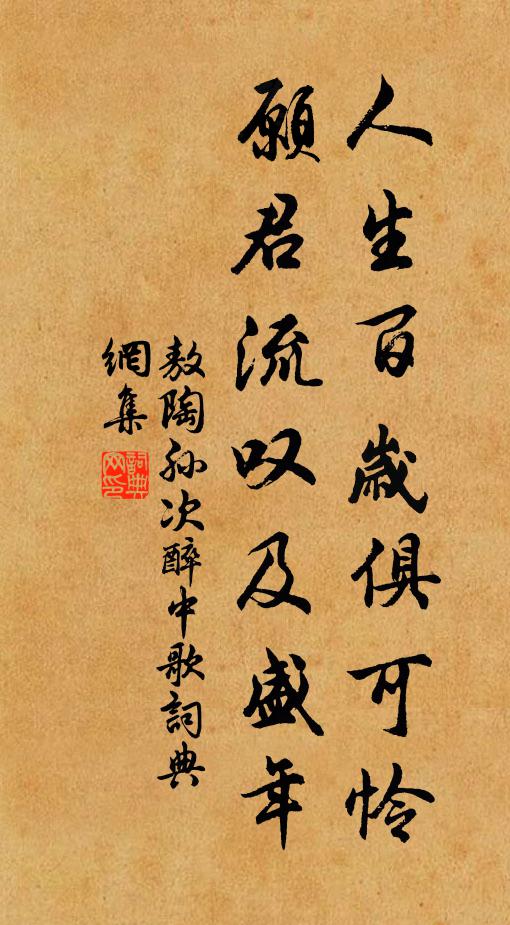 人生百歲俱可怜
願君流叹及盛年
敖陶孙次醉中歌詞典
網集
詞典
网印